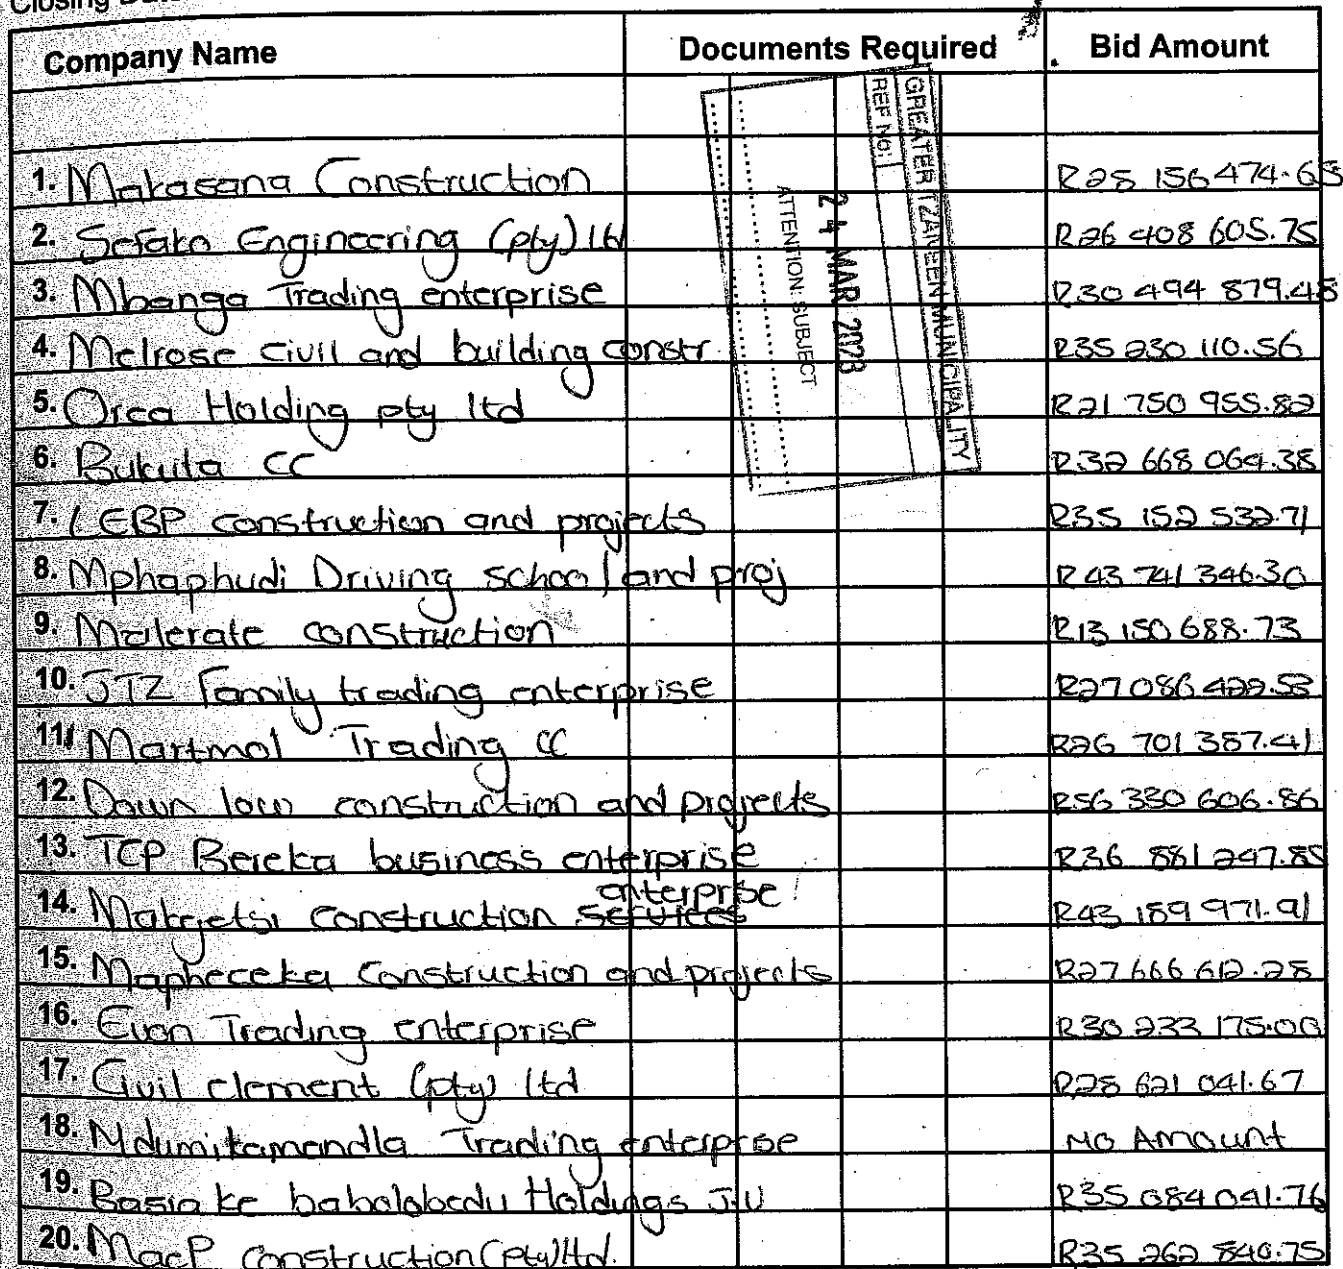 Closing
Company Name Documents Required Bid Amount
GREATER TZANEEN MUNICIPALITY
REF No:
24 MAR 2023
ATTENTION: SUBJECT
1. Makasana Construction R28 156 474.65
2. Sefako Engineering (pty) ltd R26 408 605.75
3. Mbanga Trading enterprise R30 494 879.48
4. Melrose civil and building constr. R35 230 110.56
5. Orca Holding pty ltd R21 750 955.82
6. Bukuta CC R32 668 064.38
7. LEBP construction and projects R35 152 532.71
8. Mphaphudi Driving school and proj R43 741 346.30
9. Malerate construction R13 150 688.73
10. JTZ Family trading enterprise R27 086 422.53
11. Martmol Trading CC R26 701 387.41
12. Down low construction and projects R56 330 606.86
13. TCP Bereka business enterprise R36 881 247.85
enterprse
14. construction services R43 189 971.91
15. Mapheceka Construction and projects R27 666 612.28
16. Evon Trading enterprise R30 233 175.00
17. Civil element (pty) ltd R28 621 041.67
18. Ndumikamandla Trading enterprse NO Amount
19. Basia ke babalobedu Holdings J.V R35 084 041.76
20. MacP construction (Pty) ltd. R35 262 840.75